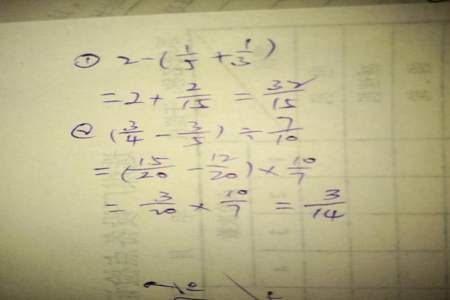 ① 2-(1/5+1/3)
=2+2/15=32/15
②(3/4-3/5)÷7/10
=(15/20-12/20)×10/7
=3/20×10/7=3/14